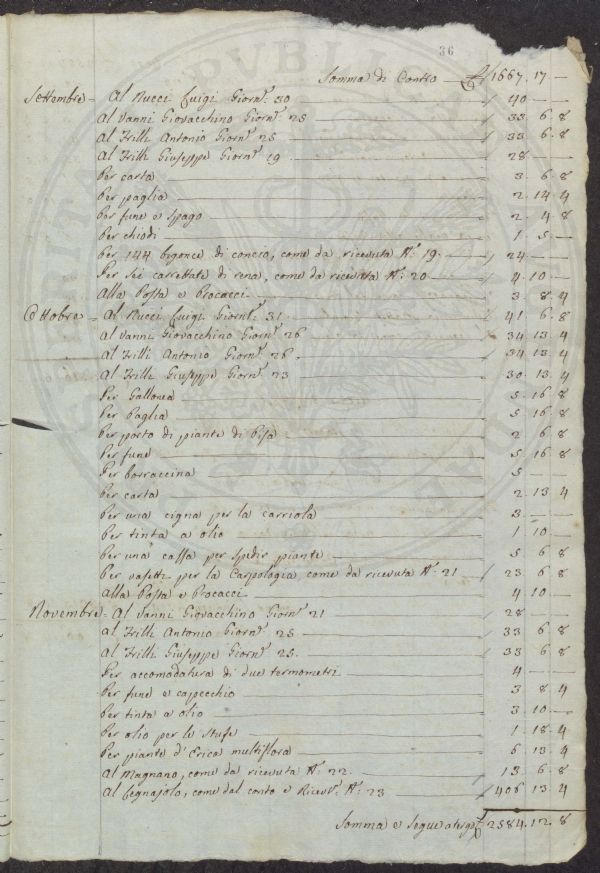 36
Somma di Contro — £ 1667. 17 —
Settembre - Al Nucci Luigi Giorn.e 30 — 40 —
Al Vanni Giovacchino Giorn.e 25 — 33. 6. 8
Al Frilli Antonio Giorn.e 25 — 33. 6. 8
Al Frilli Giuseppe Giorn.e 19 — 28 —
Per carta — 3. 6. 8
Per paglia — 2. 14. 4
Per fune e spago — 2. 4. 8
Per chiodi — 1. 5 —
Per 144 bigonce di concio, come da ricevuta N.o 19 — 24 —
Per Sei carrettate di rena, come da ricevuta N.o 20 — 4. 10 —
Alla Posta e Procacci — 3. 8. 4
Ottobre - Al Nucci Luigi Giorn.e 31 — 41. 6. 8
Al Vanni Giovacchino Giorn.e 26 — 34. 13. 4
Al Frilli Antonio Giorn.e 26 — 34. 13. 4
Al Frilli Giuseppe Giorn.e 23 — 30. 13. 4
Per Gallonea — 5. 16. 8
Per Paglia — 5. 16. 8
Per porto di piante di Pisa — 2. 6. 8
Per fune — 5. 16. 8
Per borraccina — 5 —
Per carta — 2. 13. 4
Per una cigna per la carriola — 3 —
Per tinta a olio — 1. 10 —
Per una cassa per spedir piante — 5. 6. 8
Per vasetti per la Carpologia come da ricevuta N.o 21 — 23. 6. 8
Alla Posta e Procacci — 4. 10 —
Novembre - Al Vanni Giovacchino Giorn.e 21 — 28 —
Al Frilli Antonio Giorn.e 25 — 33. 6. 8
Al Frilli Giuseppe Giorn.e 25 — 33. 6. 8
Per accomodatura di due termometri — 4 —
Per fune e capecchio — 3. 8. 4
Per tinta a olio — 3. 10 —
Per olio per le stufe — 1. 18. 4
Per piante d'Erica multiflora — 6. 13. 4
Al Magnano, come da ricevuta N.o 22 — 13. 6. 8
Al Legnajolo, come dal conto e Ricev.a N.o 23 — 406. 13. 4
Somma e Segue a tergo £ 2584. 12. 8